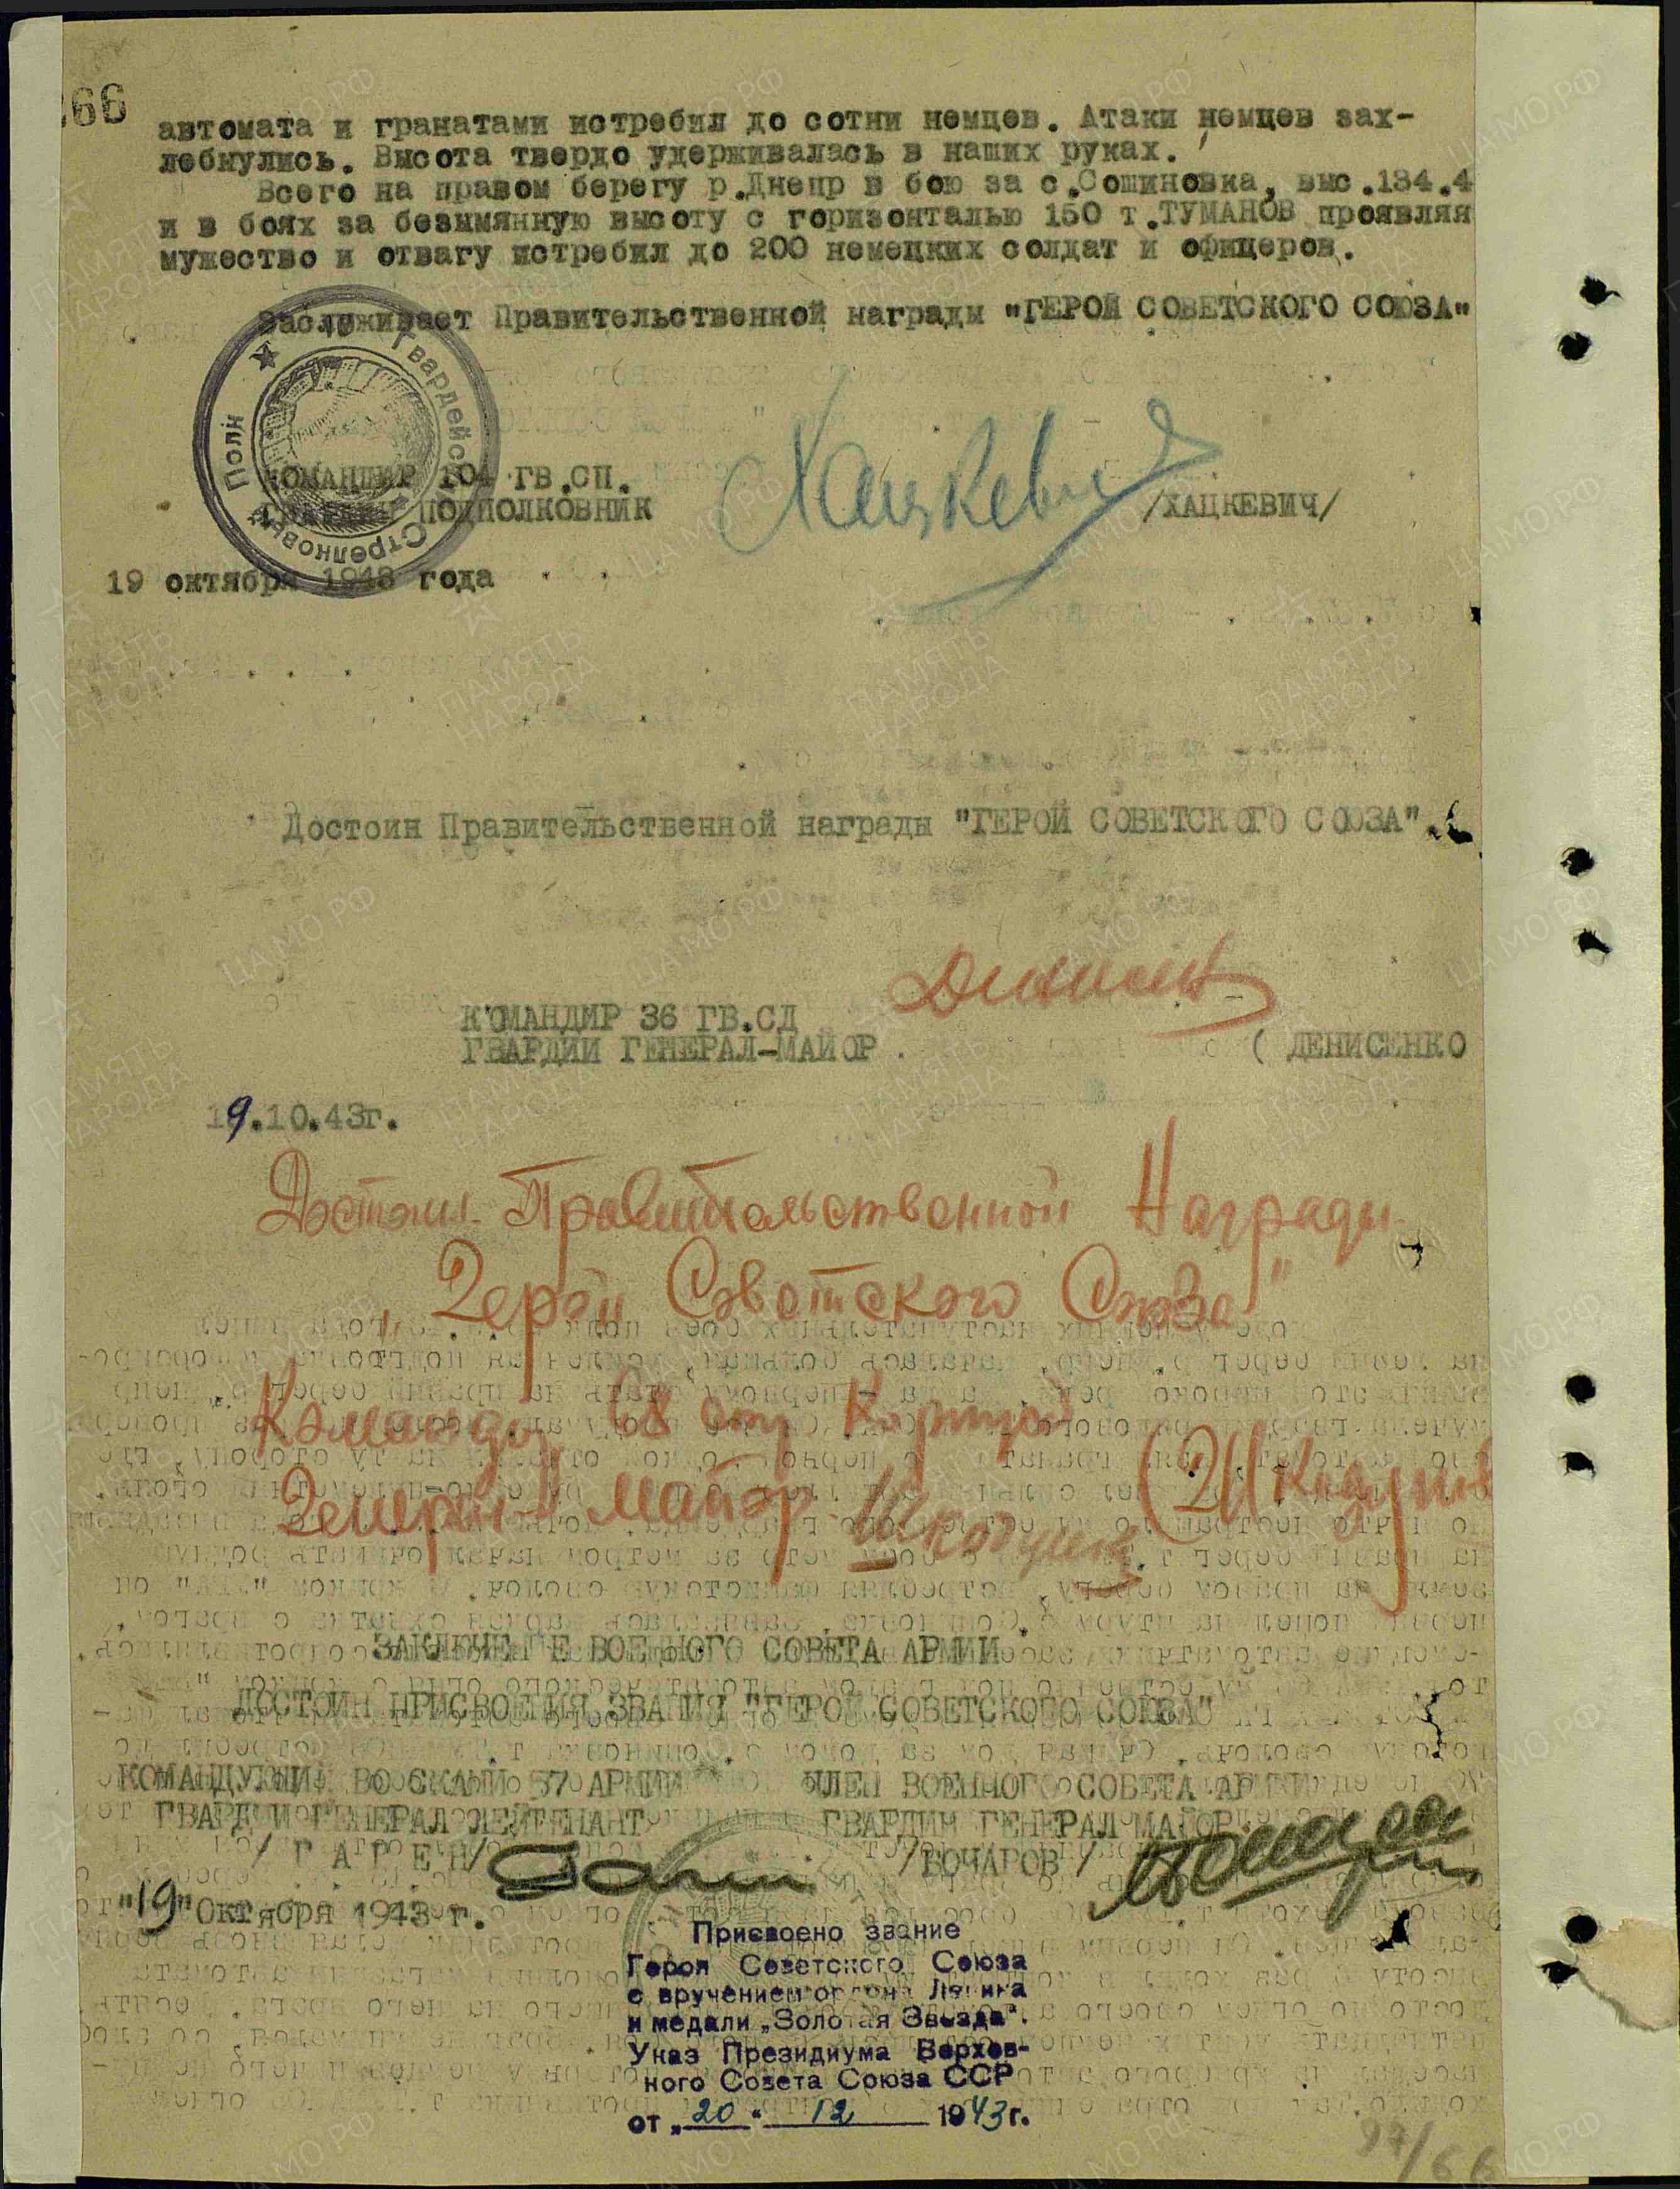 266
автомата и гранатами истребил до сотни немцев. Атаки немцев зах-
лебнулись. Высота твердо удерживалась в наших руках.
Всего на правом берегу р.Днепр в бою за с.Сошиновка, выс.134.4
и в боях за безымянную высоту с горизонталью 150 т.ТУМАНОВ проявляя
мужество и отвагу истребил до 200 немецких солдат и офицеров.
Заслуживает Правительственной награды "ГЕРОЙ СОВЕТСКОГО СОЮЗА"
Гвардейс Стрелковый Полк
КОМАНДИР 104 ГВ.СП.
ГВАРДИИ ПОДПОЛКОВНИК
Хацкевич
/ХАЦКЕВИЧ/
19 октября 1943 года
Достоин Правительственной награды "ГЕРОЙ СОВЕТСКОГО СОЮЗА".
КОМАНДИР 36 ГВ.СД
ГВАРДИИ ГЕНЕРАЛ-МАЙОР
( ДЕНИСЕНКО
19.10.43г.
Достоин Правительственной Награды
"Герой Советского Союза"
Командир 68 стр Корпуса
Генерал майор Шкодунович
ЗАКЛЮЧЕНИЕ ВОЕННОГО СОВЕТА АРМИИ.
ДОСТОИН ПРИСВОЕНИЯ ЗВАНИЯ "ГЕРОЙ СОВЕТСКОГО СОЮЗА"
КОМАНДУЮЩИЙ ВОЙСКАМИ 37 АРМИИ
ГВАРДИИ ГЕНЕРАЛ ЛЕЙТЕНАНТ
/ Г А Г Е Н /
ЧЛЕН ВОЕННОГО СОВЕТА АРМИИ
ГВАРДИИ ГЕНЕРАЛ МАЙОР
/БОЧАРОВ/
"19" Октября 1943 г.
Присвоено звание
Героя Советского Союза
с вручением ордена Ленина
и медали „Золотая Звезда".
Указ Президиума Верхов-
ного Совета Союза ССР
от „20" 12 1943 г.
97/66
ЦАМО РФ
ПАМЯТЬ
НАРОДА